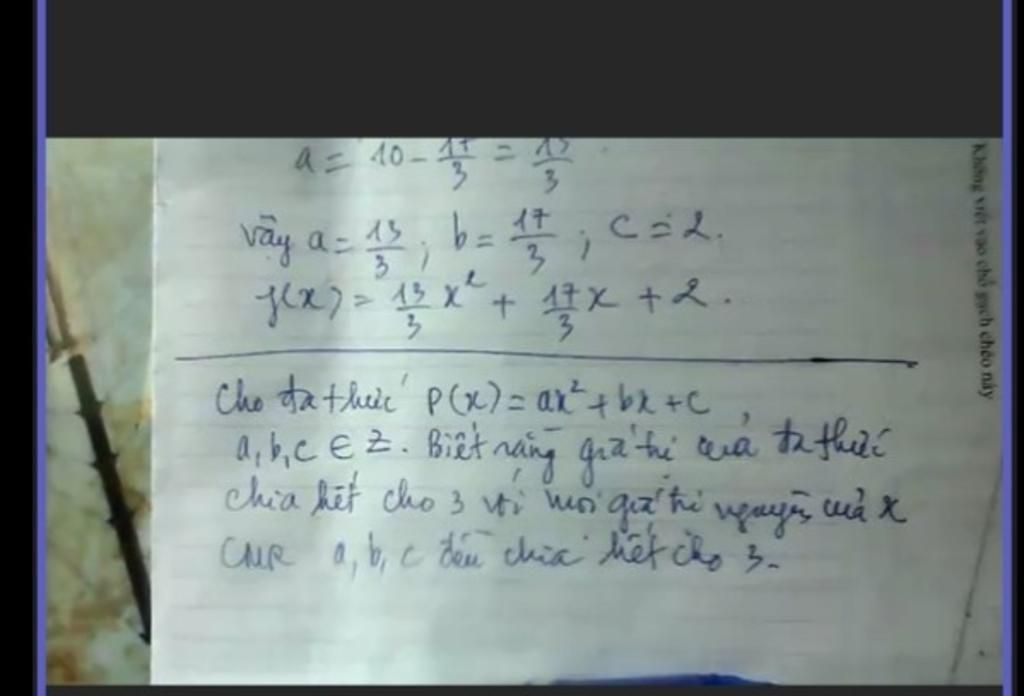 a = 10 - 17/3 = 13/3.
Vậy a = 13/3; b = 17/3; c = 2.
f(x) = 13/3 x² + 17/3 x + 2.
Cho đa thức P(x) = ax² + bx + c,
a, b, c ∈ Z. Biết rằng giá trị của đa thức
chia hết cho 3 với mọi giá trị nguyên của x
CMR a, b, c đều chia hết cho 3.
Không viết vào chỗ gạch chéo này